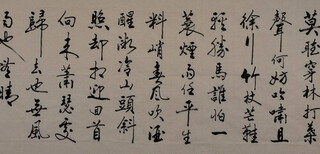 莫聽穿林打葉
聲何妨吟嘯且
徐行竹杖芒鞋
輕勝馬誰怕一
蓑煙雨任平生
料峭春風吹酒
醒微冷山頭斜
照却相迎回首
向來蕭瑟處
歸去也無風
雨也無晴